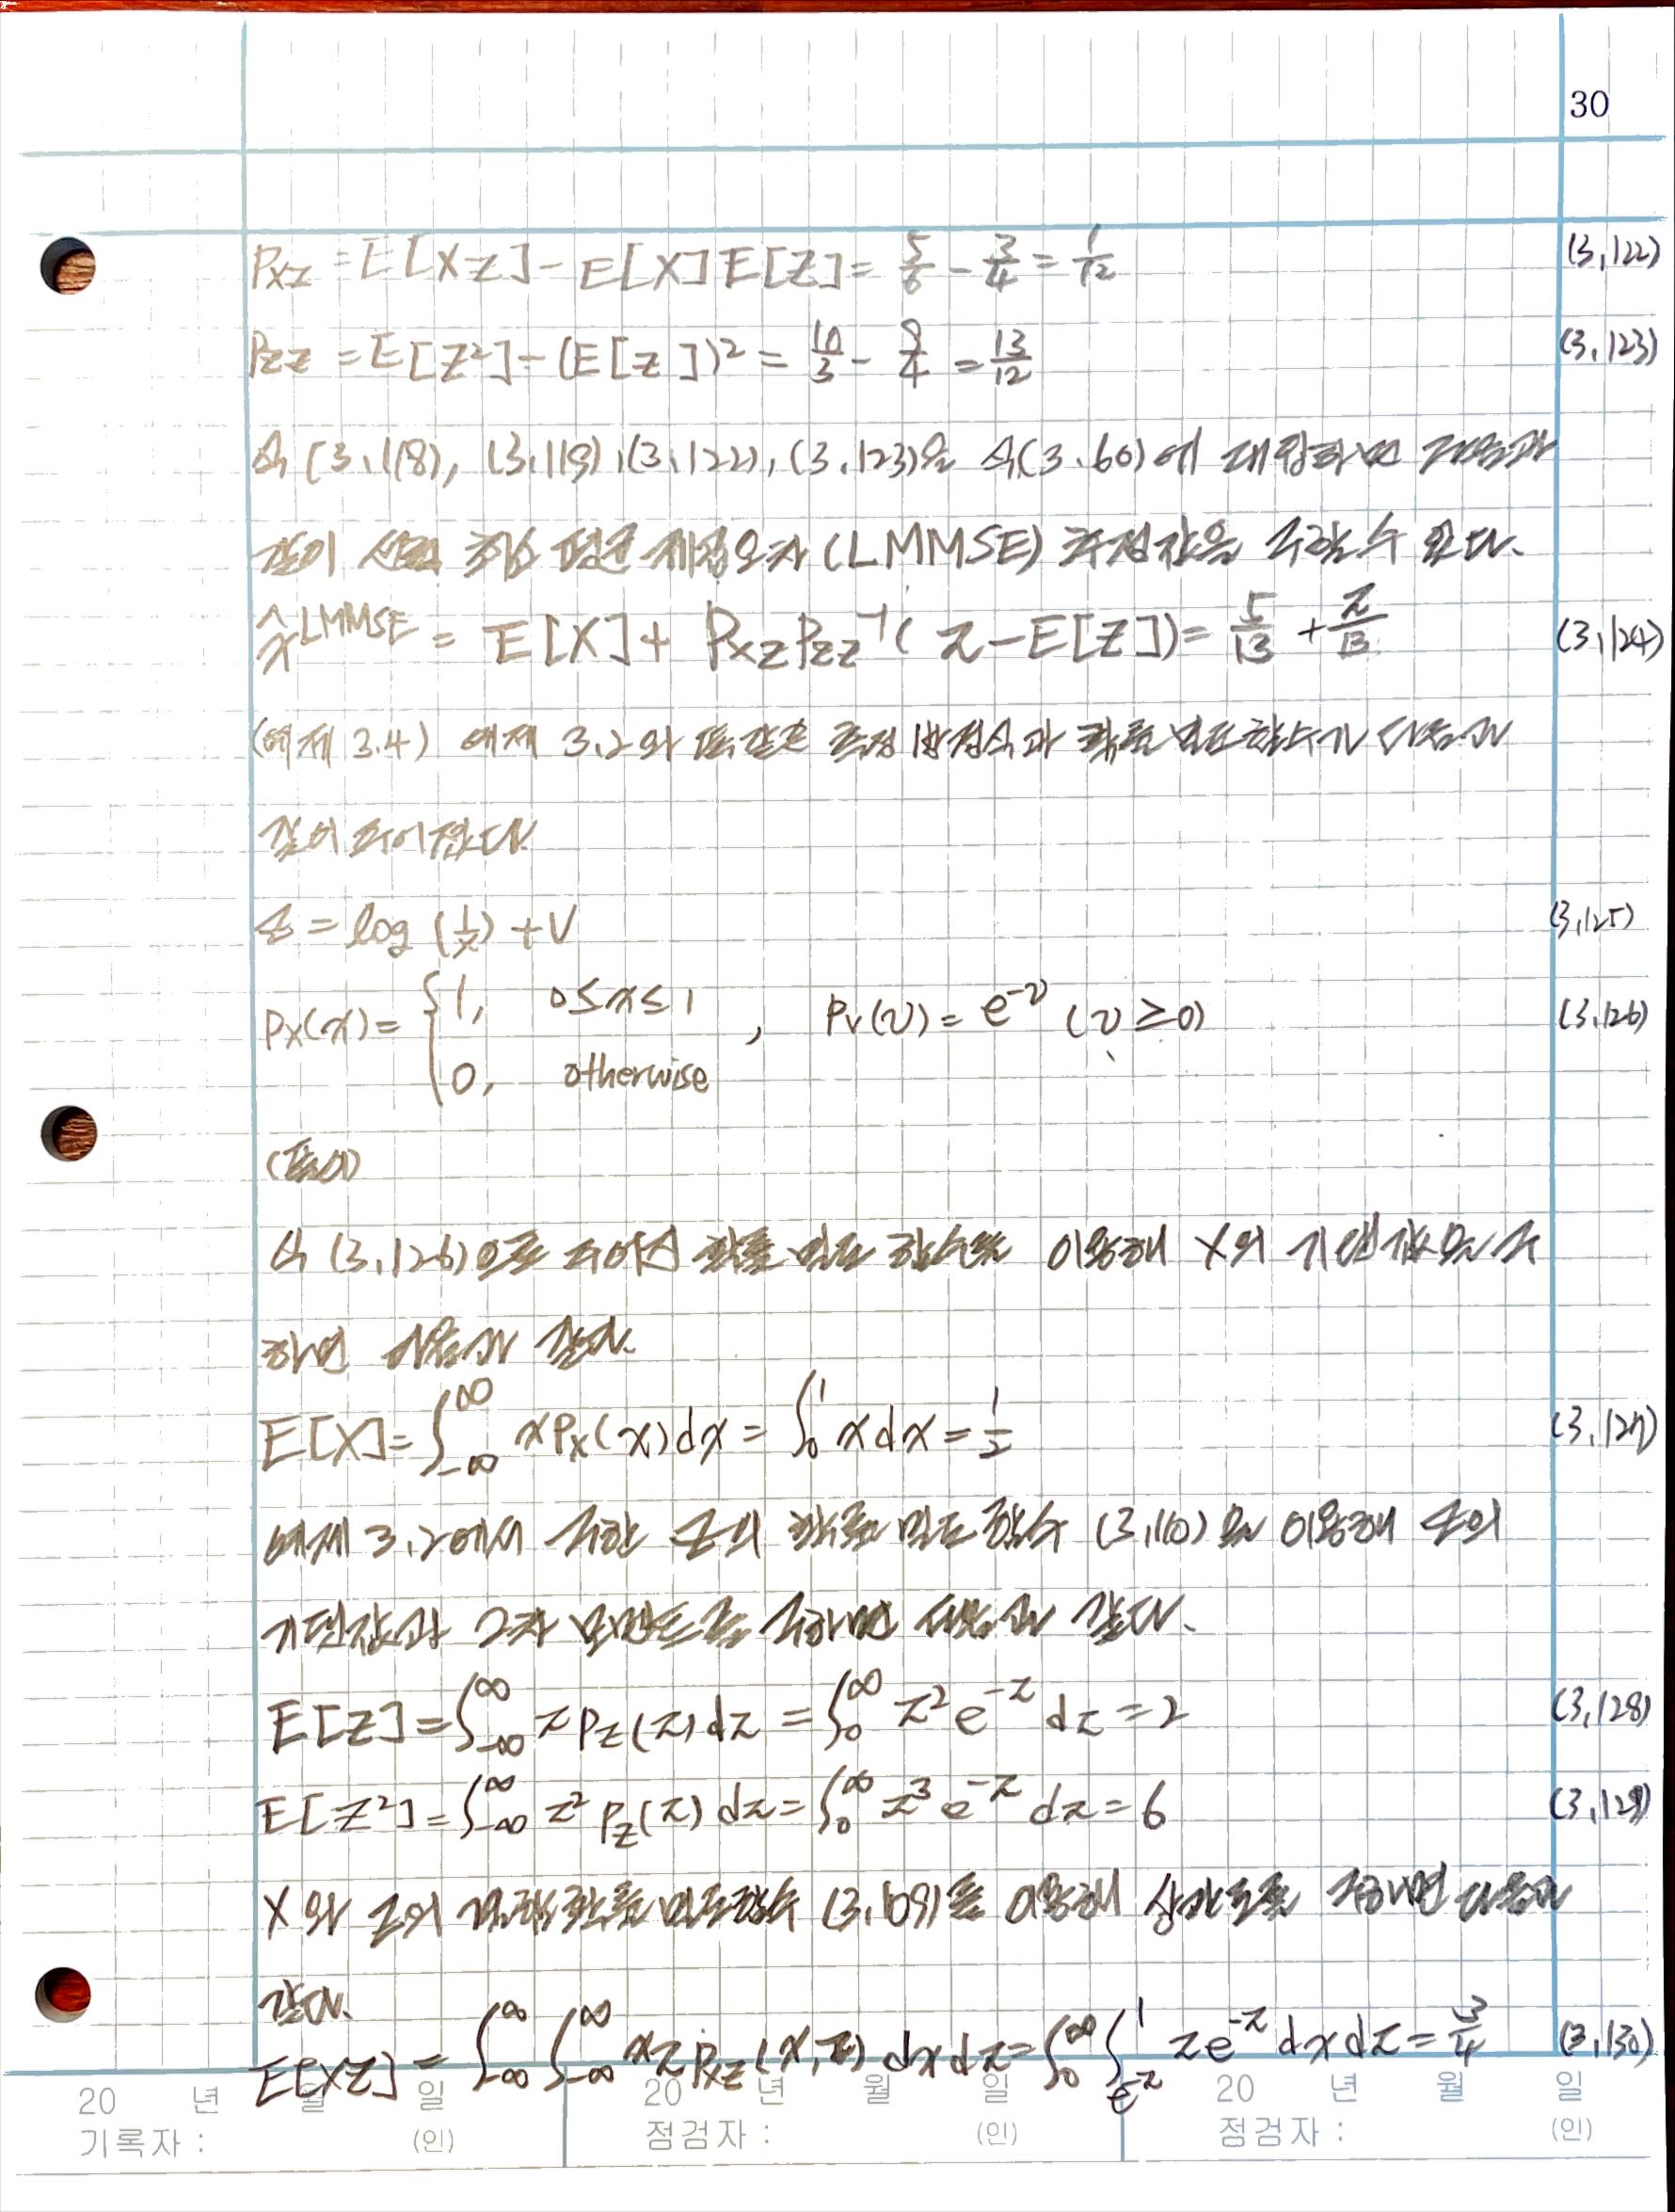 30
P_XZ = E[XZ] - E[X]E[Z] = 5/6 - 3/4 = 1/12 (3.122)
P_ZZ = E[Z²] - (E[Z])² = 10/3 - 9/4 = 13/12 (3.123)
식 (3.118), (3.119), (3.122), (3.123)을 식(3.60)에 대입하면 다음과
같이 선형 최소 평균 제곱오차 (LMMSE) 추정값을 구할 수 있다.
x̂^LMMSE = E[X] + P_XZ P_ZZ⁻¹ (z - E[Z]) = 5/13 + z/13 (3.124)
(예제 3.4) 예제 3.2와 똑같은 측정 방정식과 확률 밀도함수가 다음과
같이 주어졌다
z = log (1/x) + V (3.125)
P_X(x) = { 1, 0 ≤ x ≤ 1 , P_V(v) = e^-v (v ≥ 0) (3.126)
0, otherwise
(풀이)
식 (3.126)으로 주어진 확률 밀도 함수를 이용해 X의 기댓값을 구
하면 다음과 같다.
E[X] = ∫_-∞^∞ x P_X(x) dx = ∫_0^1 x dx = 1/2 (3.127)
예제 3.2에서 구한 Z의 확률 밀도 함수 (3.110)을 이용해 Z의
기댓값과 2차 모멘트를 구하면 다음과 같다.
E[Z] = ∫_-∞^∞ z P_Z(z) dz = ∫_0^∞ z² e^-z dz = 2 (3.128)
E[Z²] = ∫_-∞^∞ z² P_Z(z) dz = ∫_0^∞ z³ e^-z dz = 6 (3.129)
X와 Z의 결합 확률 밀도함수 (3.109)를 이용해 상관도를 구하면 다음과
같다.
E[XZ] = ∫_-∞^∞ ∫_-∞^∞ xz P_XZ(x,z) dx dz = ∫_0^∞ ∫_e^-z^1 z e^-z dx dz = 3/4 (3.130)
20 년 월 일 20 년 월 일 20 년 월 일
기록자 : (인) 점검자 : (인) 점검자 : (인)